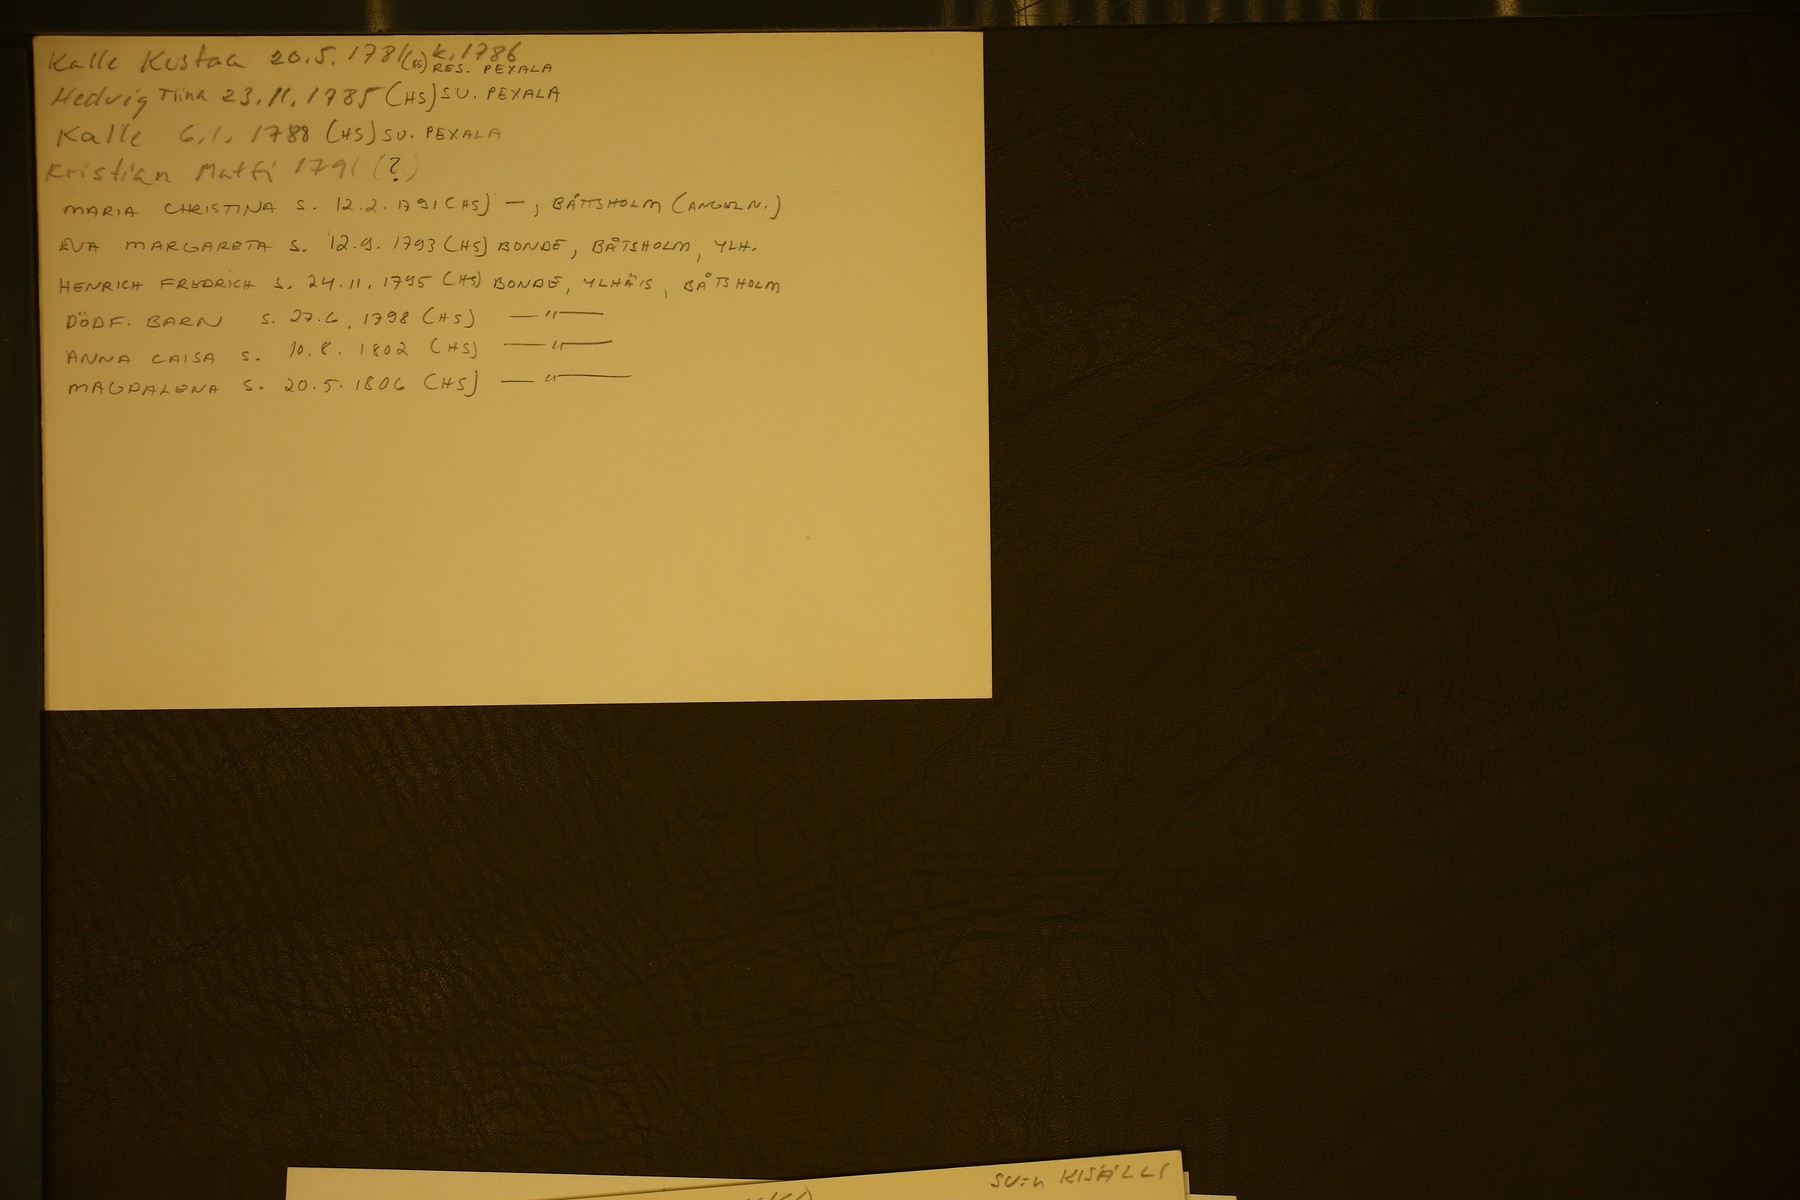 Kalle Kustaa 20.5.1781 (HS) k. 1786
RES. PEXALA
Hedvig Tiina 23.11.1785 (HS) SU. PEXALA
Kalle 6.1.1788 (HS) SU. PEXALA
Kristian Matti 1791 (?)
MARIA CHRISTINA S. 12.2.1791 (HS) —, BÅTTSHOLM (ANGELN.)
EVA MARGARETA S. 12.9.1793 (HS) BONDE, BÅTSHOLM, YLH.
HENRICH FREDRICH S. 24.11.1795 (HS) BONDE, YLHÄIS, BÅTSHOLM
DÖDF. BARN S. 27.6.1798 (HS) —"—
ANNA CAISA S. 10.8.1802 (HS) —"—
MAGDALENA S. 20.5.1806 (HS) —"—
SU:n KISÄLLI